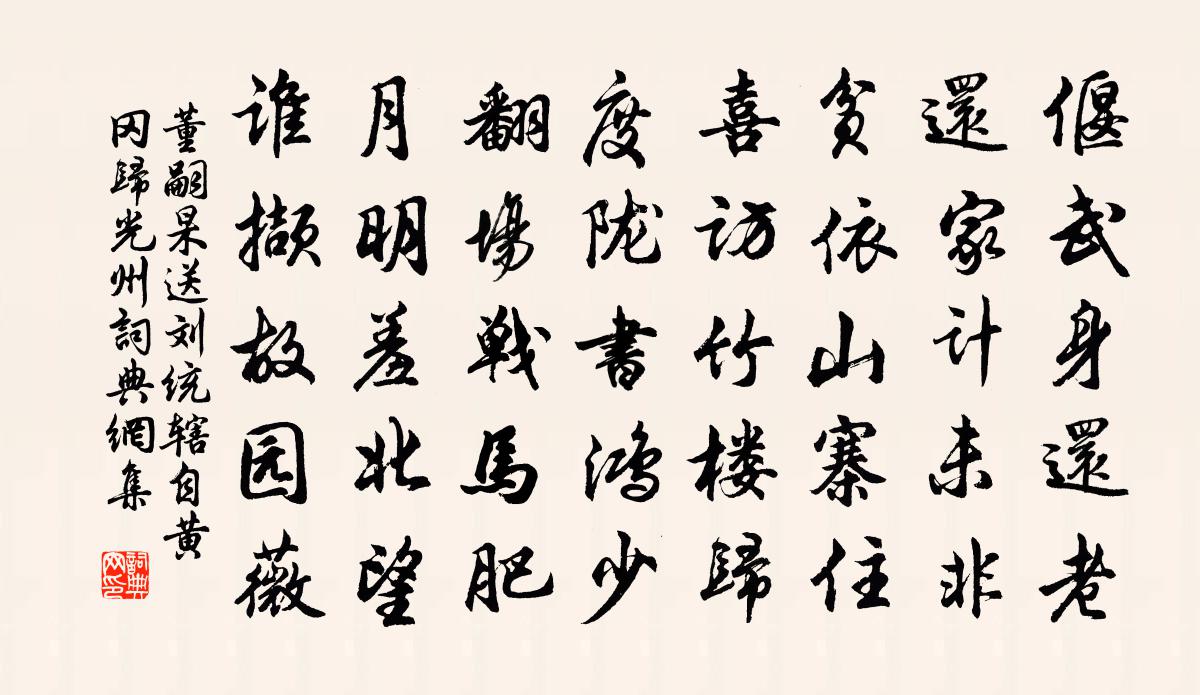 偃武身還老
還家计未非
貧依山寨住
喜访竹楼歸
度陇書鸿少
翻場戰馬肥
月明羞北望
谁撷故园薇
董嗣杲送刘统辖自黄
冈歸光州詞典網集
詞典網印